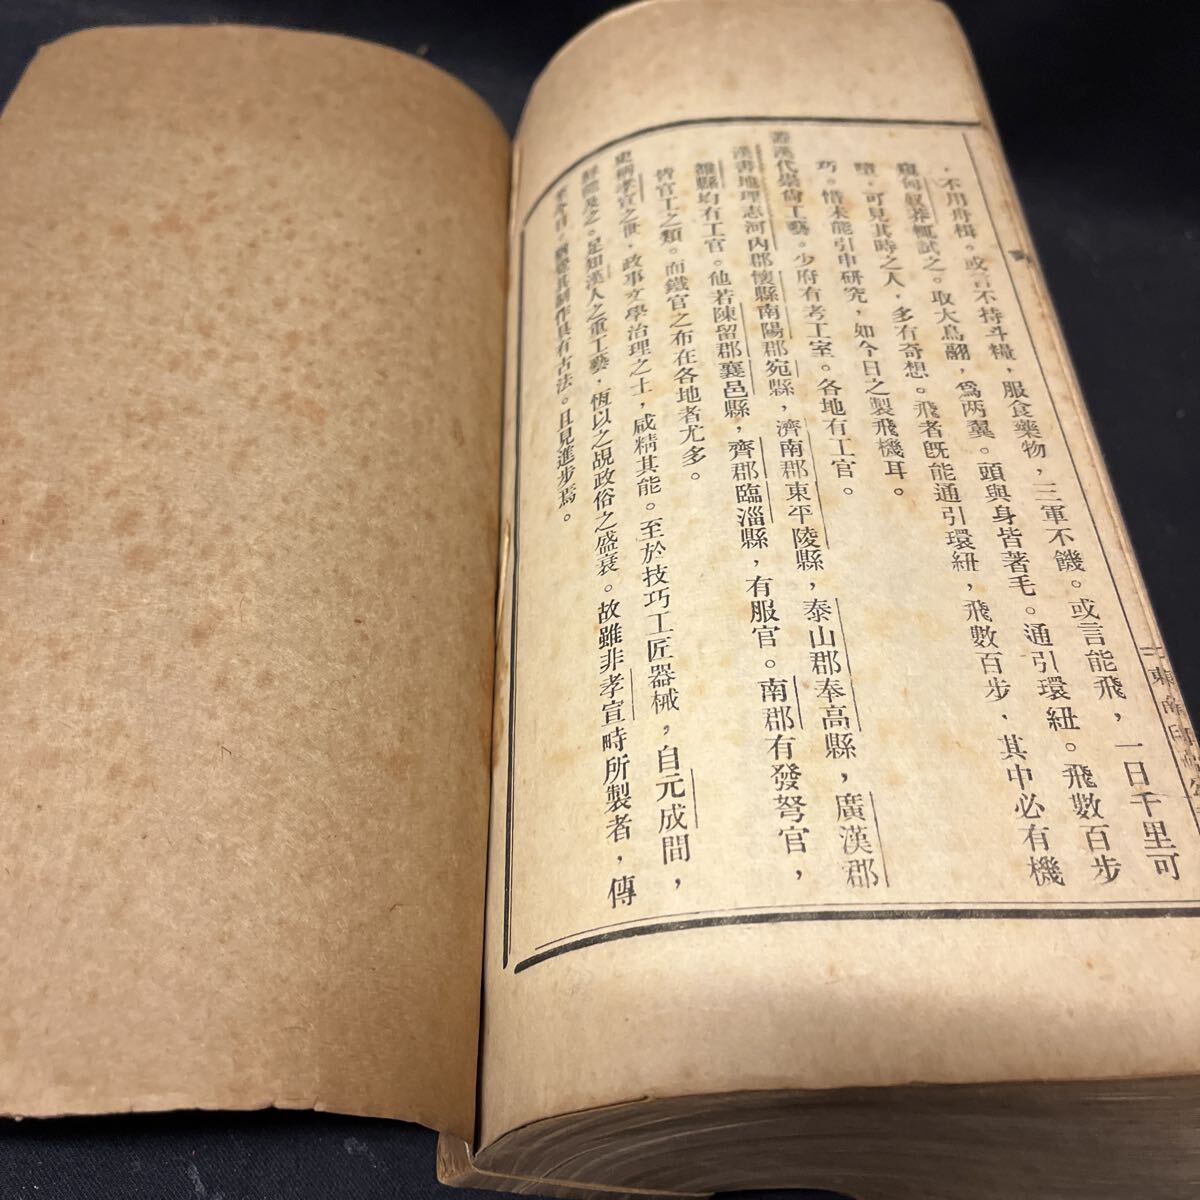 ，不用舟楫。或言不持斗糧，服食藥物，三軍不饑。或言能飛，一日千里可
窺匈奴莽輒試之。取大鳥翮，爲兩翼。頭與身皆著毛。通引環紐。飛數百步
墮，可見其時之人，多有奇想。飛者旣能通引環紐，飛數百步．其中必有機
巧。惜未能引申研究，如今日之製飛機耳。
蓋漢代崇尙工藝。少府有考工室。各地有工官。
漢書地理志河內郡懷縣南陽郡宛縣，濟南郡東平陵縣，泰山郡奉高縣，廣漢郡
雒縣均有工官。他若陳留郡襄邑縣，齊郡臨淄縣，有服官。南郡有發弩官，
皆官工之類。而鐵官之布在各地者尤多。
史稱孝宣之世，政事文學治理之士，咸精其能。至於技巧工匠器械，自元成間，
鮮能及之。足知漢人之重工藝，恆以之覘政俗之盛衰。故雖非孝宣時所製者，傳
至今日，猶覺其制作具有古法。且見進步焉。
東南印